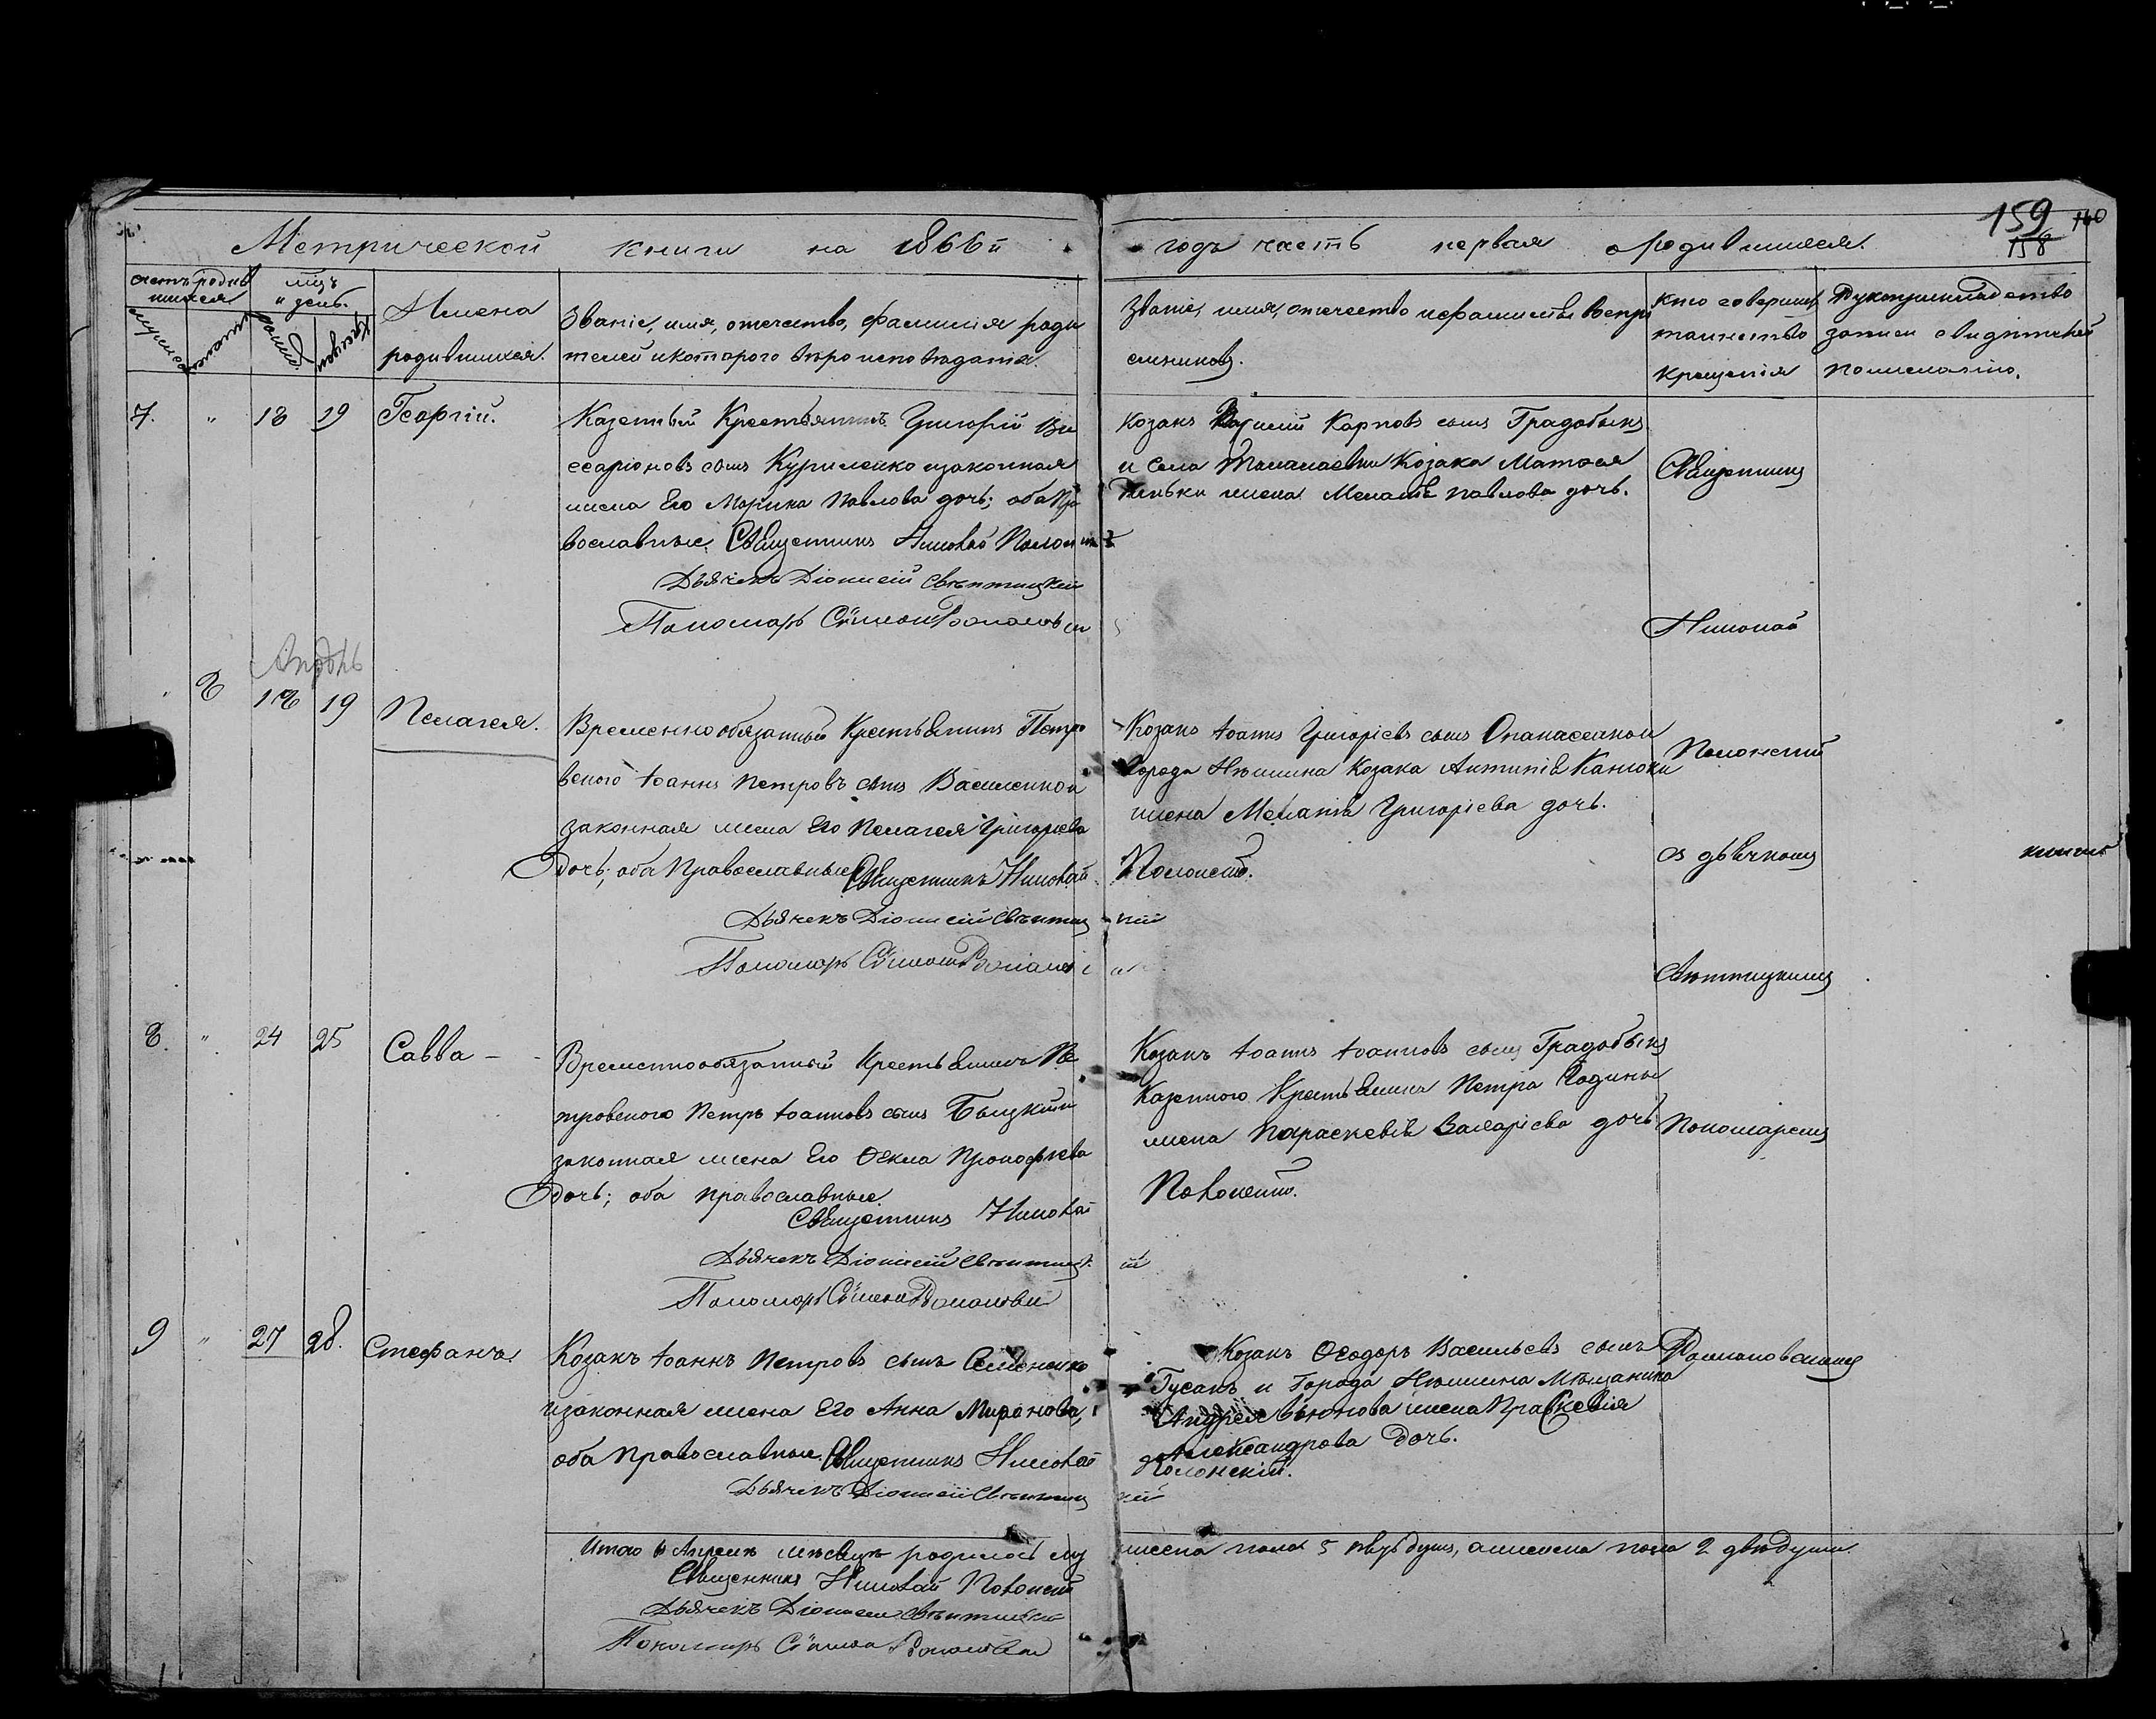 Метрической книги на 1866й годъ часть первая о родившихся.
159
158
160
счетъ родив
шихся
мцъ
и день.
Имена
родившихся.
Званіе, имя, отечество, фамилія роди
телей и которого вѣроисповѣданія.
Званіе, имя, отечество и фамилія воспрі
емниковъ.
Кто соверш.
таинство
крещенія
Рукоприкладство
записи свидѣтелей
по желанію.
7. " 18 19 Георгій.
Казенный Крестьянинъ Григорій Ви
ссаріоновъ сынъ Куриленко и законная
жена Его Марина Павлова дочь; оба Пра
вославные. Священникъ Николай Полонскі
Дьячекъ Діонисій Свѣнтицкій
Пономарь Симеонъ Романовскі
Козакъ Василій Карповъ сынъ Градобыкъ
и Села Талалаевки Козака Матѳея
жена Меланія Павлова дочь.
Священникъ
Николай
Апрѣль
" 8 18 19 Пелагея.
Временнообязанный Крестьянинъ Петро
вского Іоаннъ Петровъ сынъ Василенко и
законная жена Его Пелагея Григорьева
дочь; оба Православные Священникъ Николай Полонскій.
Дьячекъ Діонисій Свѣнтицкій
Пономарь Симеонъ Романовскі
Козакъ Іоаннъ Григоріевъ сынъ Опанасенко и
города Нѣжина Козака Антипія Канюки
жена Меланія Григоріева дочь.
Полонскій
съ дьячкомъ
Свѣнтицкимъ
8. " 24 25 Савва
Временнообязанный Крестьянинъ Пе
тровского Петръ Іоанновъ сынъ Быцкій и
законная жена Его Ѳекла Прокофіева
дочь; оба православные
Священникъ Николай Полонскій.
Дьячекъ Діонисій Свѣнтицкій
Пономарь Симеонъ Романовскі
Козакъ Іоаннъ Іоанновъ сынъ Градобыкъ
Казенного Крестьянина Петра Годины
жена Параскевія Захаріева дочь
Пономаремъ
9 " 27 28. Стефанъ.
Козакъ Іоаннъ Петровъ сынъ Семененко
и законная жена Его Анна Миронова,
оба Православные. Священникъ Николай Полонскій.
Дьячекъ Діонисій Свѣнтицкій
Козакъ Ѳеодоръ Васильевъ сынъ
Гусакъ и Города Нѣжина Мѣщанина
Андрея Вьюнова жена Праскевія
Александрова дочь.
Романовскимъ
Итого въ Апрелѣ мѣсяцѣ родилось муж
еска пола 5 пять душъ, а женска пола 2 двѣ души.
Священникъ Николай Полонскій
Дьячекъ Діонисій Свѣнтицкій
Пономарь Симеонъ Романовскі